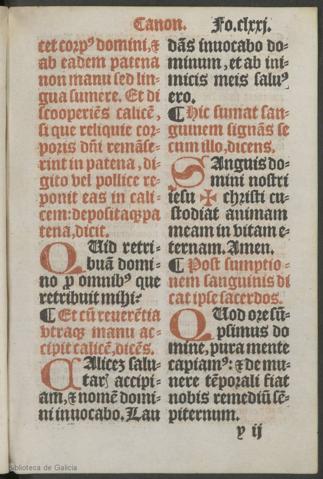 Canon. Fo.clxxj.
tet corpꝰ domini, ⁊
ab eadem patena
non manu sed lin-
gua sumere. Et di
scooperiẽs calicẽ,
si que reliquie cor-
poris dñi remãse-
rint in patena, di-
gito vel pollice re-
ponit eas in cali-
cem: depositaqꝫ pa
tena, dicit.
QUid retri-
buã domi-
no ꝓ omnibꝰ que
retribuit mihi:
¶ Et cũ reuerẽtia
vtraqꝫ manu ac-
cipit calicẽ, dicẽs.
CAlicez salu-
taris accipi-
am, ⁊ nomẽ domi-
ni inuocabo. Lau
dãs inuocabo do-
minum, et ab ini-
micis meis saluꝰ
ero.
¶ Hic sumat san-
guinem signãs se
cum illo, dicens.
SAnguis do-
mini nostri
iesu ✠ christi cu-
stodiat animam
meam in vitam e-
ternam. Amen.
¶ Post sumptio-
nem sanguinis di
cat ipse sacerdos.
QUod ore sũ-
psimus do
mine, pura mente
capiamꝰ: ⁊ de mu-
nere tẽporali fiat
nobis remediũ sẽ-
piternum.
y ij
Biblioteca de Galicia